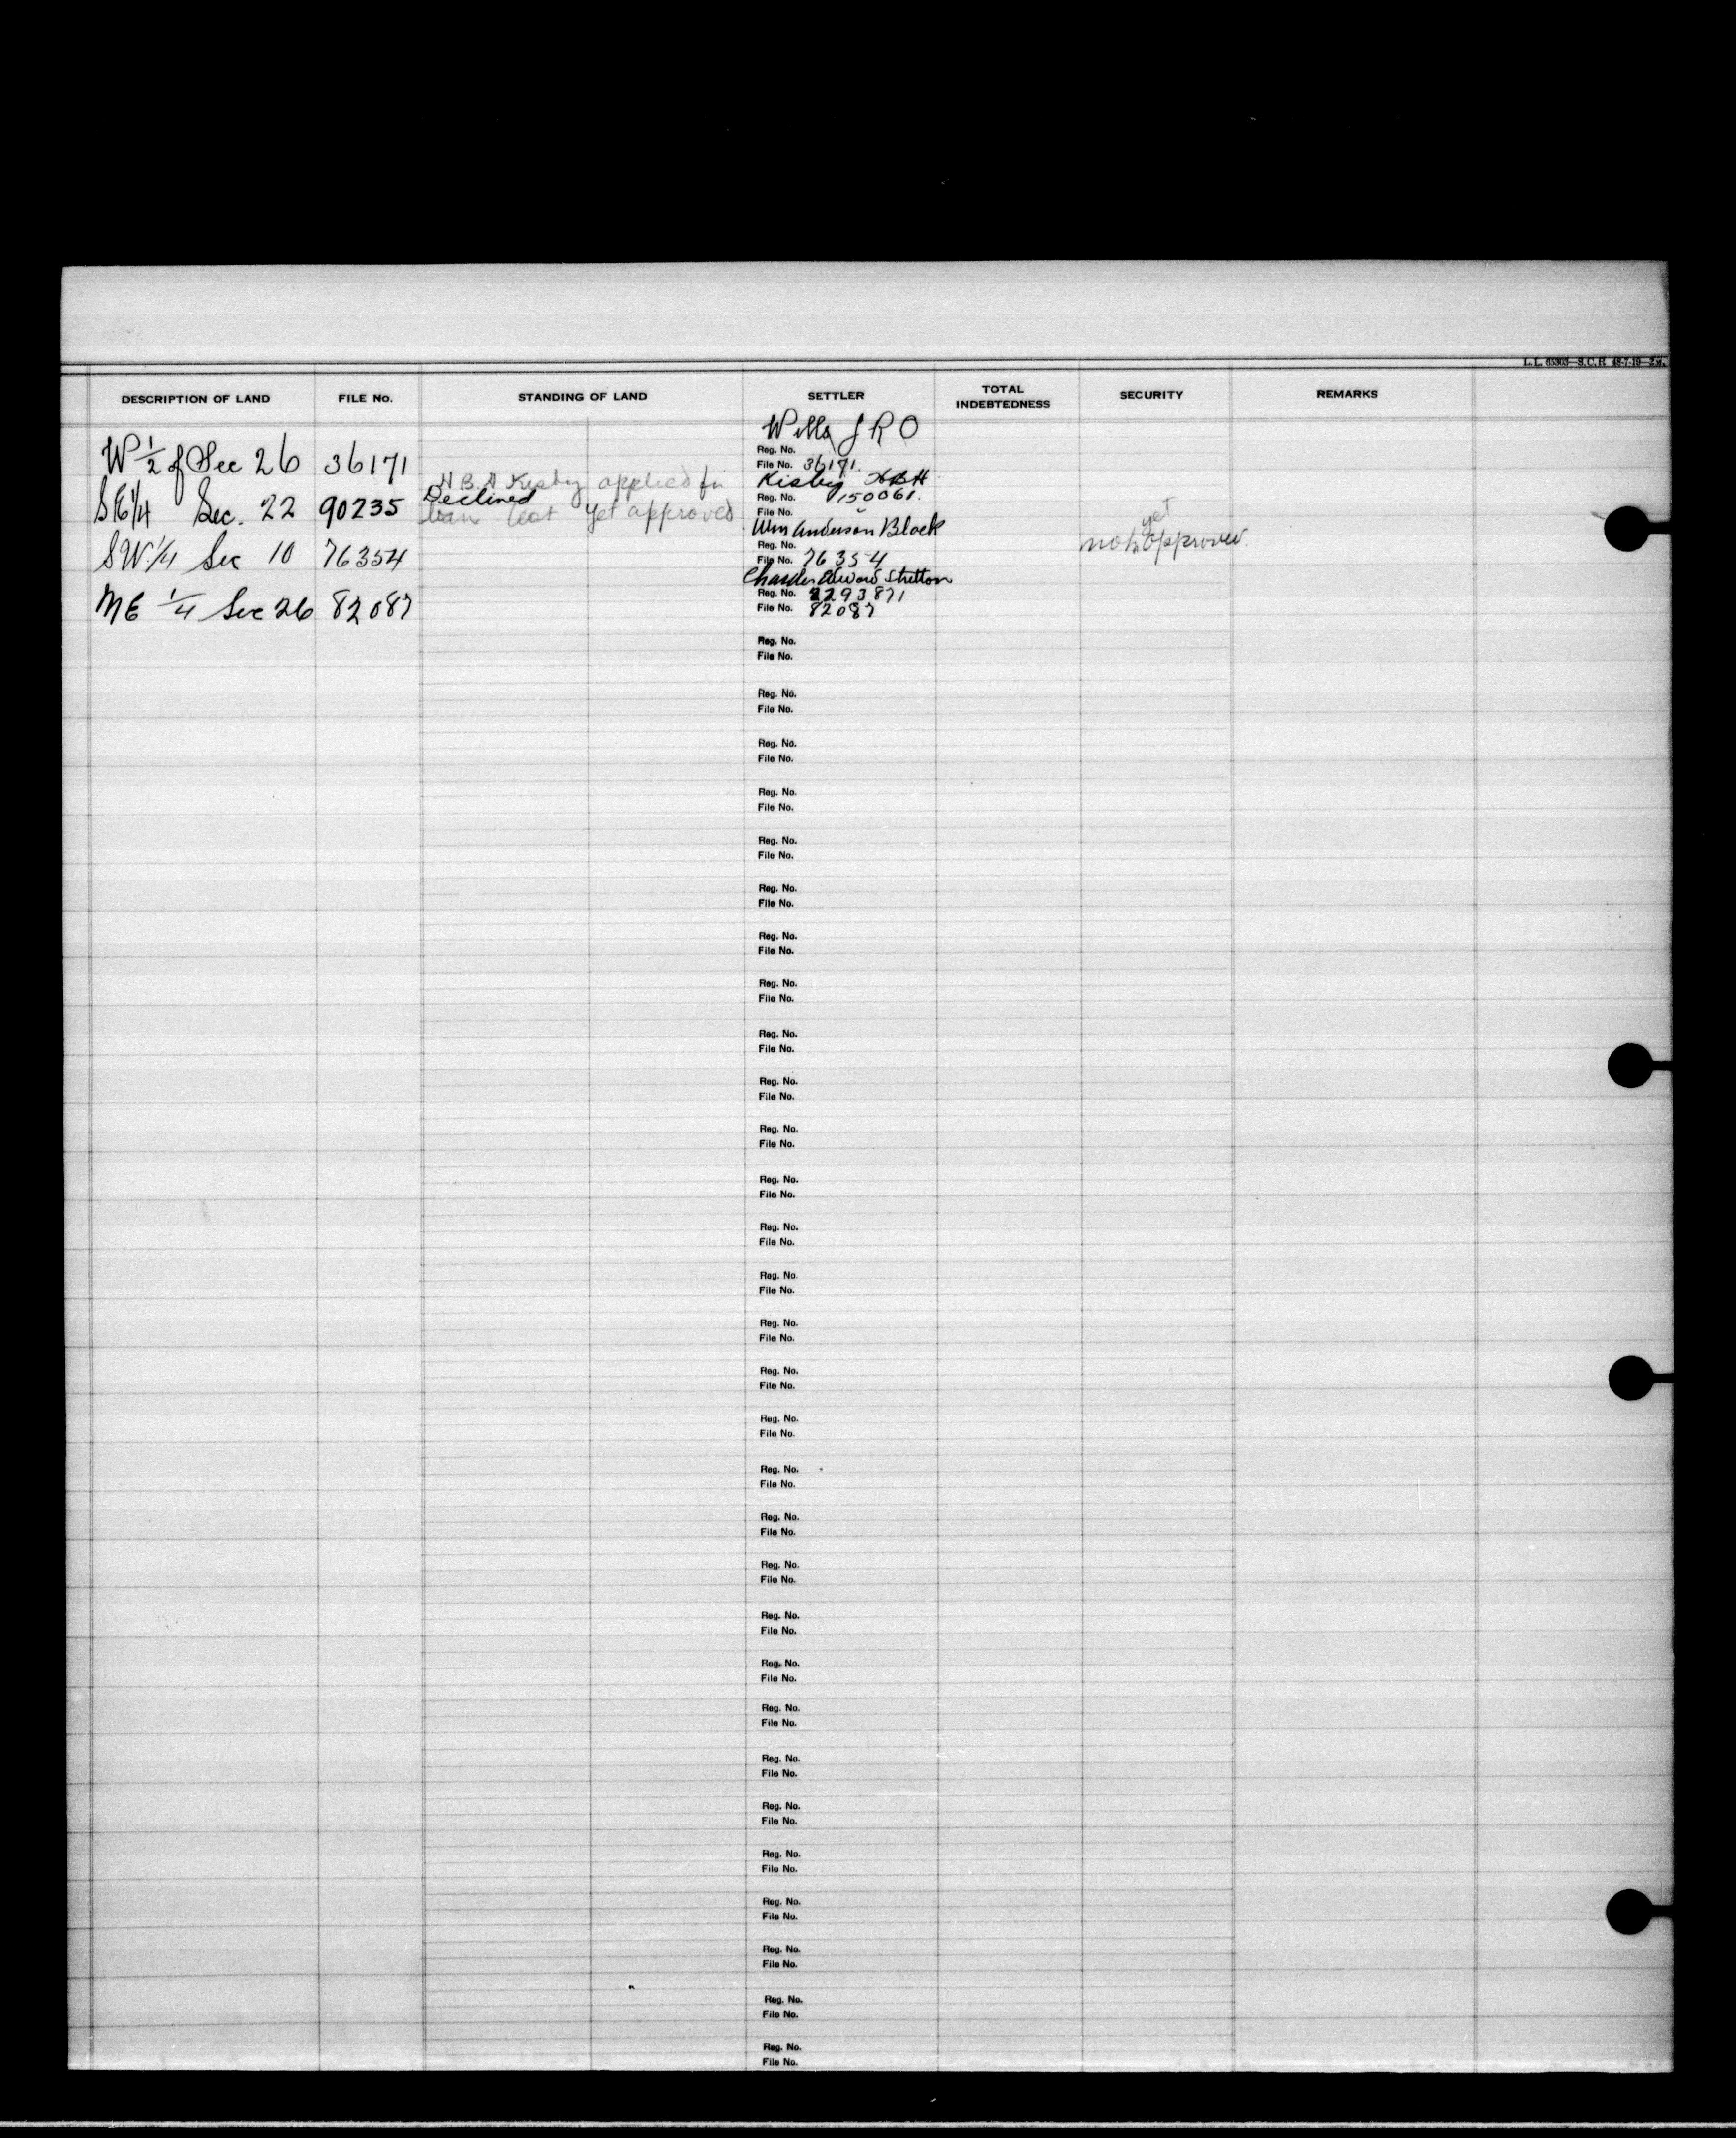 L. L. 65303—S.C.R. 48-7-19—2M.
DESCRIPTION OF LAND FILE No. STANDING OF LAND SETTLER TOTAL INDEBTEDNESS SECURITY REMARKS
Wills J R O
W 1/2 of Sec 26 36171
Reg. No.
File No. 36171.
H B H Kisby applied for
Kisby HBH
SE 1/4 Sec. 22 90235 Declined
Reg. No. 150061.
loan not yet approved
File No.
Wm Anderson Black
yet
SW 1/4 Sec 10 76354
Reg. No.
not approved.
File No. 76354
Charles Edward Stretton
NE 1/4 Sec 26 82087
Reg. No. 2293871
File No. 82087
Reg. No.
File No.
Reg. No.
File No.
Reg. No.
File No.
Reg. No.
File No.
Reg. No.
File No.
Reg. No.
File No.
Reg. No.
File No.
Reg. No.
File No.
Reg. No.
File No.
Reg. No.
File No.
Reg. No.
File No.
Reg. No.
File No.
Reg. No.
File No.
Reg. No.
File No.
Reg. No.
File No.
Reg. No.
File No.
Reg. No.
File No.
Reg. No.
File No.
Reg. No.
File No.
Reg. No.
File No.
Reg. No.
File No.
Reg. No.
File No.
Reg. No.
File No.
Reg. No.
File No.
Reg. No.
File No.
Reg. No.
File No.
Reg. No.
File No.
Reg. No.
File No.
Reg. No.
File No.
Reg. No.
File No.